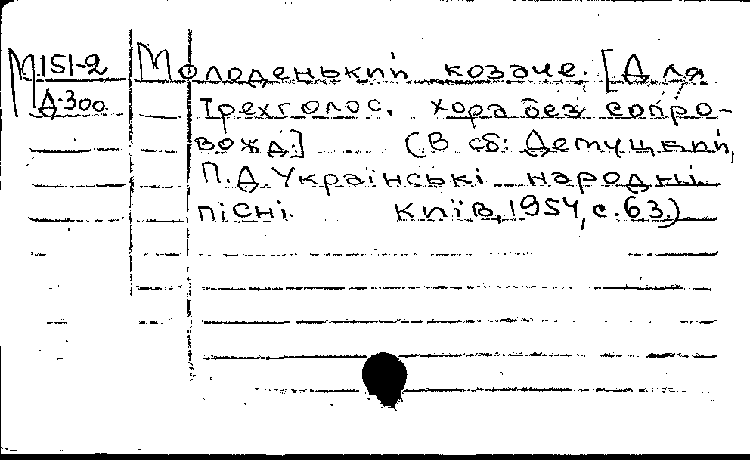 М151-2
Д-300
Молоденький козаче. [Для
трехголос. хора без сопро-
вожд.] (В сб: Демуцький,
П.Д. Українські народні
пісні. Київ, 1954, с. 63.)